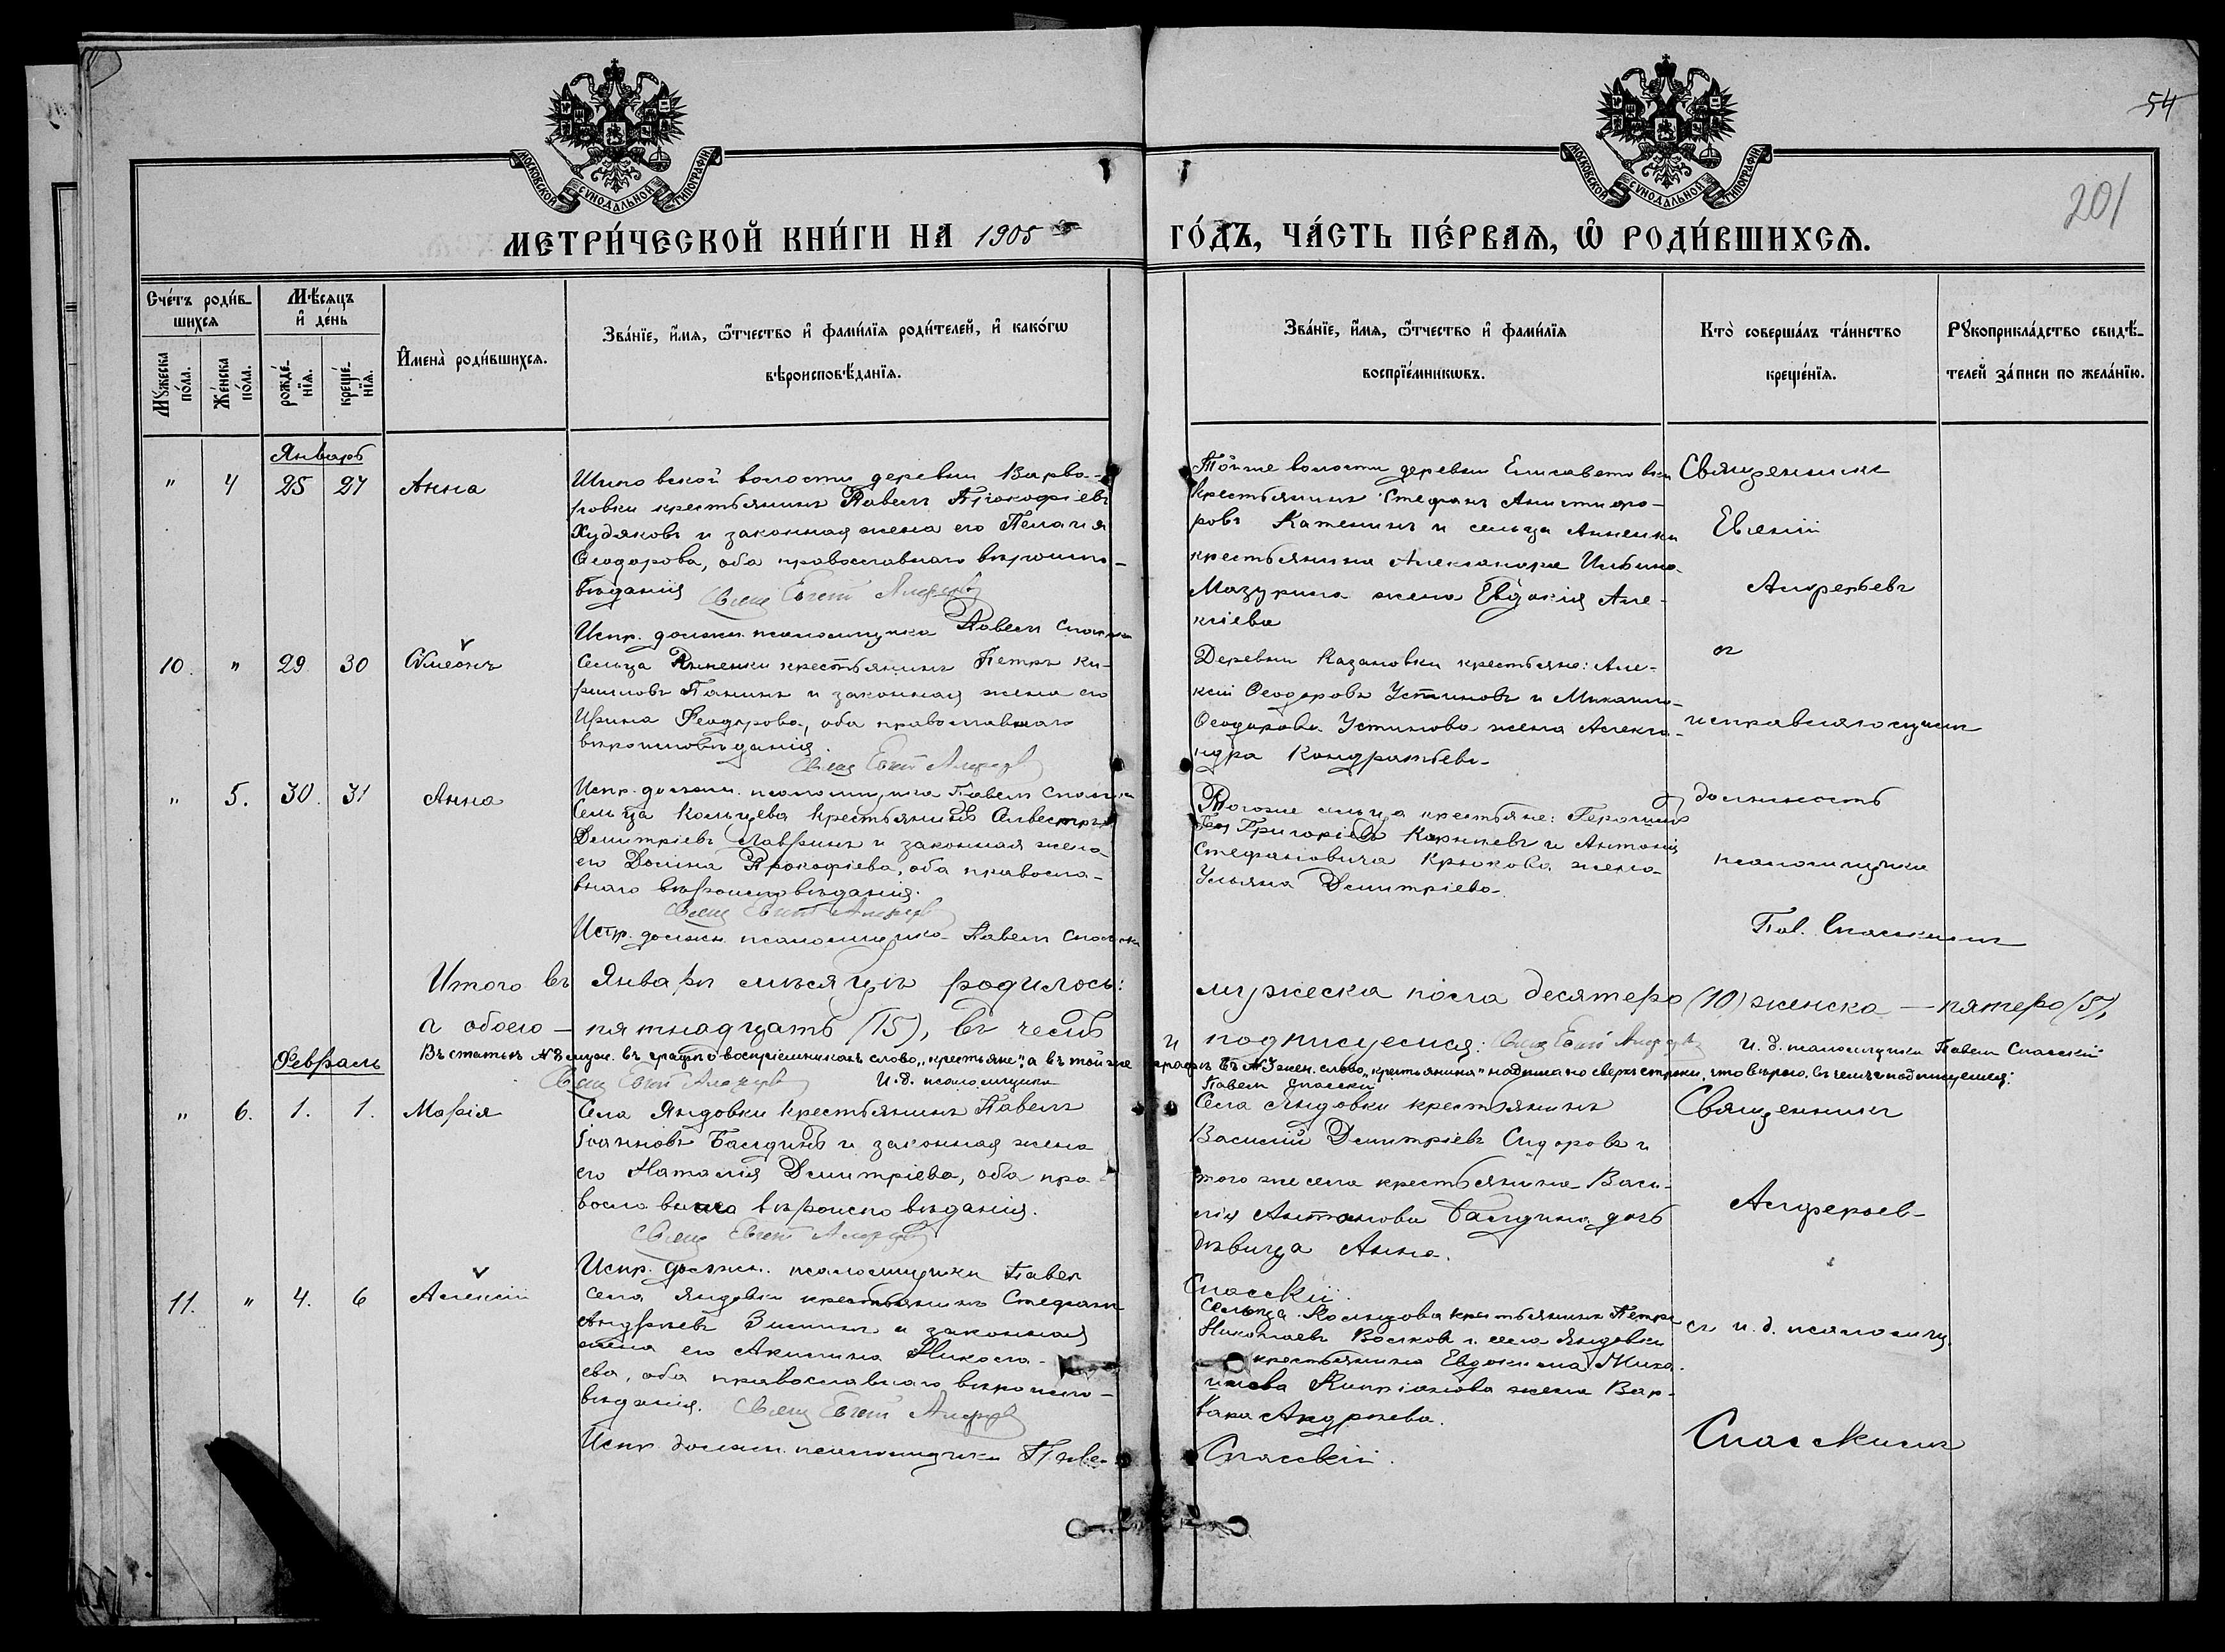 54
201
МОСКОВСКОЙ СѴНОДАЛЬНОЙ ТИПОГРАФІИ
МОСКОВСКОЙ СѴНОДАЛЬНОЙ ТИПОГРАФІИ
МЕТРИ́ЧЕСКОЙ КНИ́ГИ НА 1905 ГО́ДЪ, ЧА́СТЬ ПЕ́РВАѦ, Ѡ҆ РОДИ́ВШИХСѦ.
Сче́тъ роди́в-
шихсѧ
Мѹ́жеска по́ла.
Же́нска по́ла.
Мѣ́сѧцъ
и҆ де́нь
рожде́-
нїѧ.
креще́-
нїѧ.
И҆мена̀ роди́вшихсѧ.
Зва́нїе, и҆́мѧ, ѻ҆́тчество и҆ фами́лїѧ роди́телей, и҆ како́гѡ
вѣроисповѣ́данїѧ.
Зва́нїе, и҆́мѧ, ѻ҆́тчество и҆ фами́лїѧ
воспрїе́мникѡвъ.
Кто̀ соверша́лъ та́инство
креще́нїѧ.
Рѹкоприкла́дство свидѣ́-
телей за́писи по жела́нїю.
Январь
" 4 25 27 Анна
Шиповской волости деревни Варва-
ровки крестьянинъ Павелъ Прокофіевъ
Худяковъ и законная жена его Пелагія
Ѳеодорова, оба православнаго вѣроиспо-
вѣданія
Свящ Евгеній Алферьевъ
Испр. должн. псаломщика Павелъ Спасскій
Той же волости деревни Елисаветовки
крестьянинъ Стефанъ
ровъ Катенинъ и сельца Анненки
крестьянина Александра Ильина
Мазурина жена Евдокія Але-
ксіева
Священникъ
Евгеній
Алферьевъ
съ
исправляющимъ
должность
псаломщика
Пав. Спасскимъ
10. " 29 30 Сѵмеонъ
Сельца Анненки крестьянинъ Петръ Ки-
рилловъ Панинъ и законная жена его
Ирина Ѳеодорова, оба православнаго
вѣроисповѣданія.
Свящ Евгеній Алферьевъ
Испр. должн. псаломщика Павелъ Спасскій
Деревни Казановки крестьяне: Але-
ксій Ѳеодоровъ Устиновъ и Михаила
Ѳеодорова Устинова жена Алекса-
ндра Кондратьева
" 5. 30. 31 Анна
Сельца Кольцева крестьянинъ Силвестръ
Димитріевъ Лавринъ и законная жена
его Домна Прокофіева, оба правосла-
внаго вѣроисповѣданія.
Свящ Евгеній Алферьевъ
Испр. должн. псаломщика Павелъ Спасскій
Того же сельца крестьяне:
Григорієвъ Корнѣевъ и Антонія
Стефановича Крюкова жена
Ульяна Димитріева
Итого въ Январѣ мѣсяцѣ родилось: мужеска пола десятеро (10) женска — пятеро (5),
а обоего — пятнадцать (15), въ чемъ и подписуемся: Свящ Евгеній Алферьевъ И. д. псаломщика Павелъ Спасскій
Въ статьѣ № 8 муж. въ графѣ о воспріемникахъ слово „крестьяне", а въ той же графѣ въ № 3 женск. слово „крестьянина" надписано сверхъ строки, что вѣрно, въ чемъ и подписуемся:
Свящ Евгеній Алферьевъ И. д. псаломщика Павелъ Спасскій
Февраль
" 6. 1. 1. Марія
Села Яндовки крестьянинъ Павелъ
Іоанновъ Балдинъ и законная жена
его Наталія Димитріева, оба пра-
вославнаго вѣроисповѣданія.
Свящ Евгеній Алферьевъ
Испр. должн. псаломщика Павелъ
Спасскій.
Села Яндовки крестьянинъ
Василій Димитріевъ Сидоровъ и
того же села крестьянина Васи-
лія Антонова Балдина дочь
дѣвица Анна.
Священникъ
Алферьевъ
съ и. д. псаломщ.
Спасскимъ
11. " 4. 6 Алексій
Села Яндовки крестьянинъ Стефанъ
Андреевъ Зиминъ и законная
жена его Акилина Никола-
ева, оба православнаго вѣроиспо-
вѣданія. Свящ Евгеній Алферьевъ
Испр. должн. псаломщика Павелъ
Спасскій.
Сельца Кольцова крестьянинъ Петръ
Николаевъ Волковъ и села Яндовки
крестьянина Евдокима
Кипріанова жена Вар-
вара Андреева.